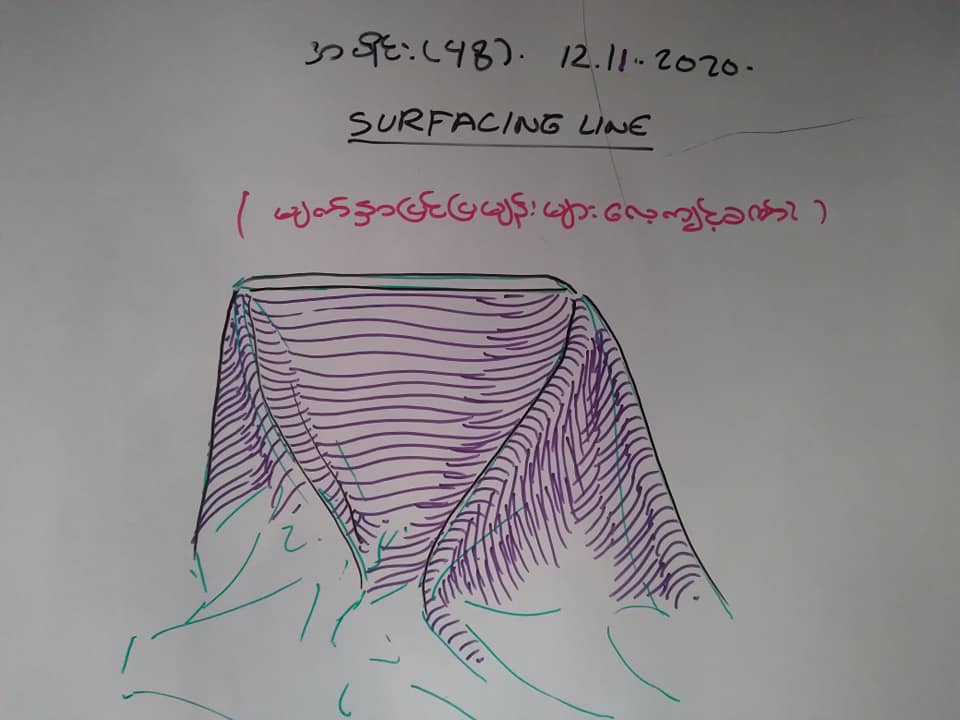 အပိုင်း(48). 12.11.2020.
SURFACING LINE
(မျက်နှာပြင်ပြမျဉ်းများလေ့ကျင့်ခဏ်း)